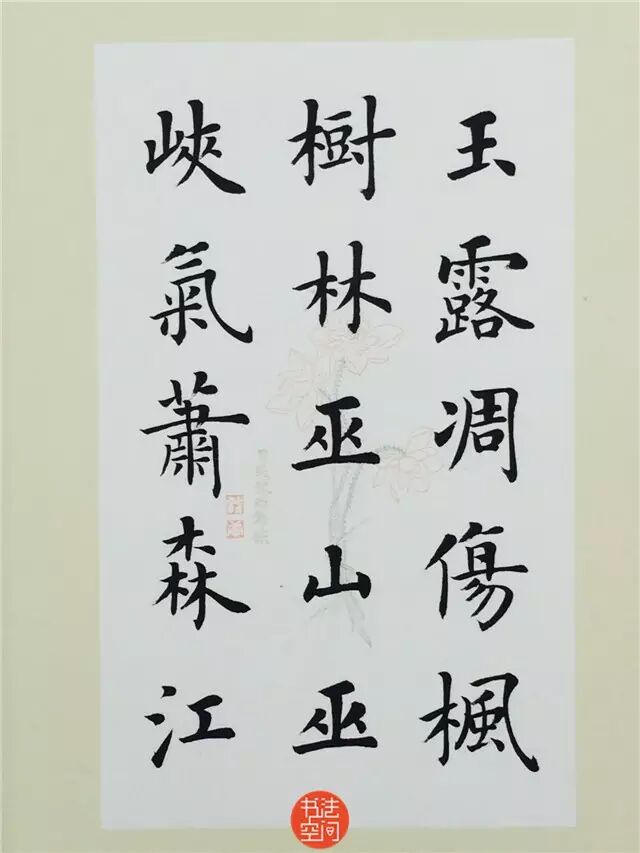 玉露凋傷楓
樹林巫山巫
峽氣蕭森江
书法空间